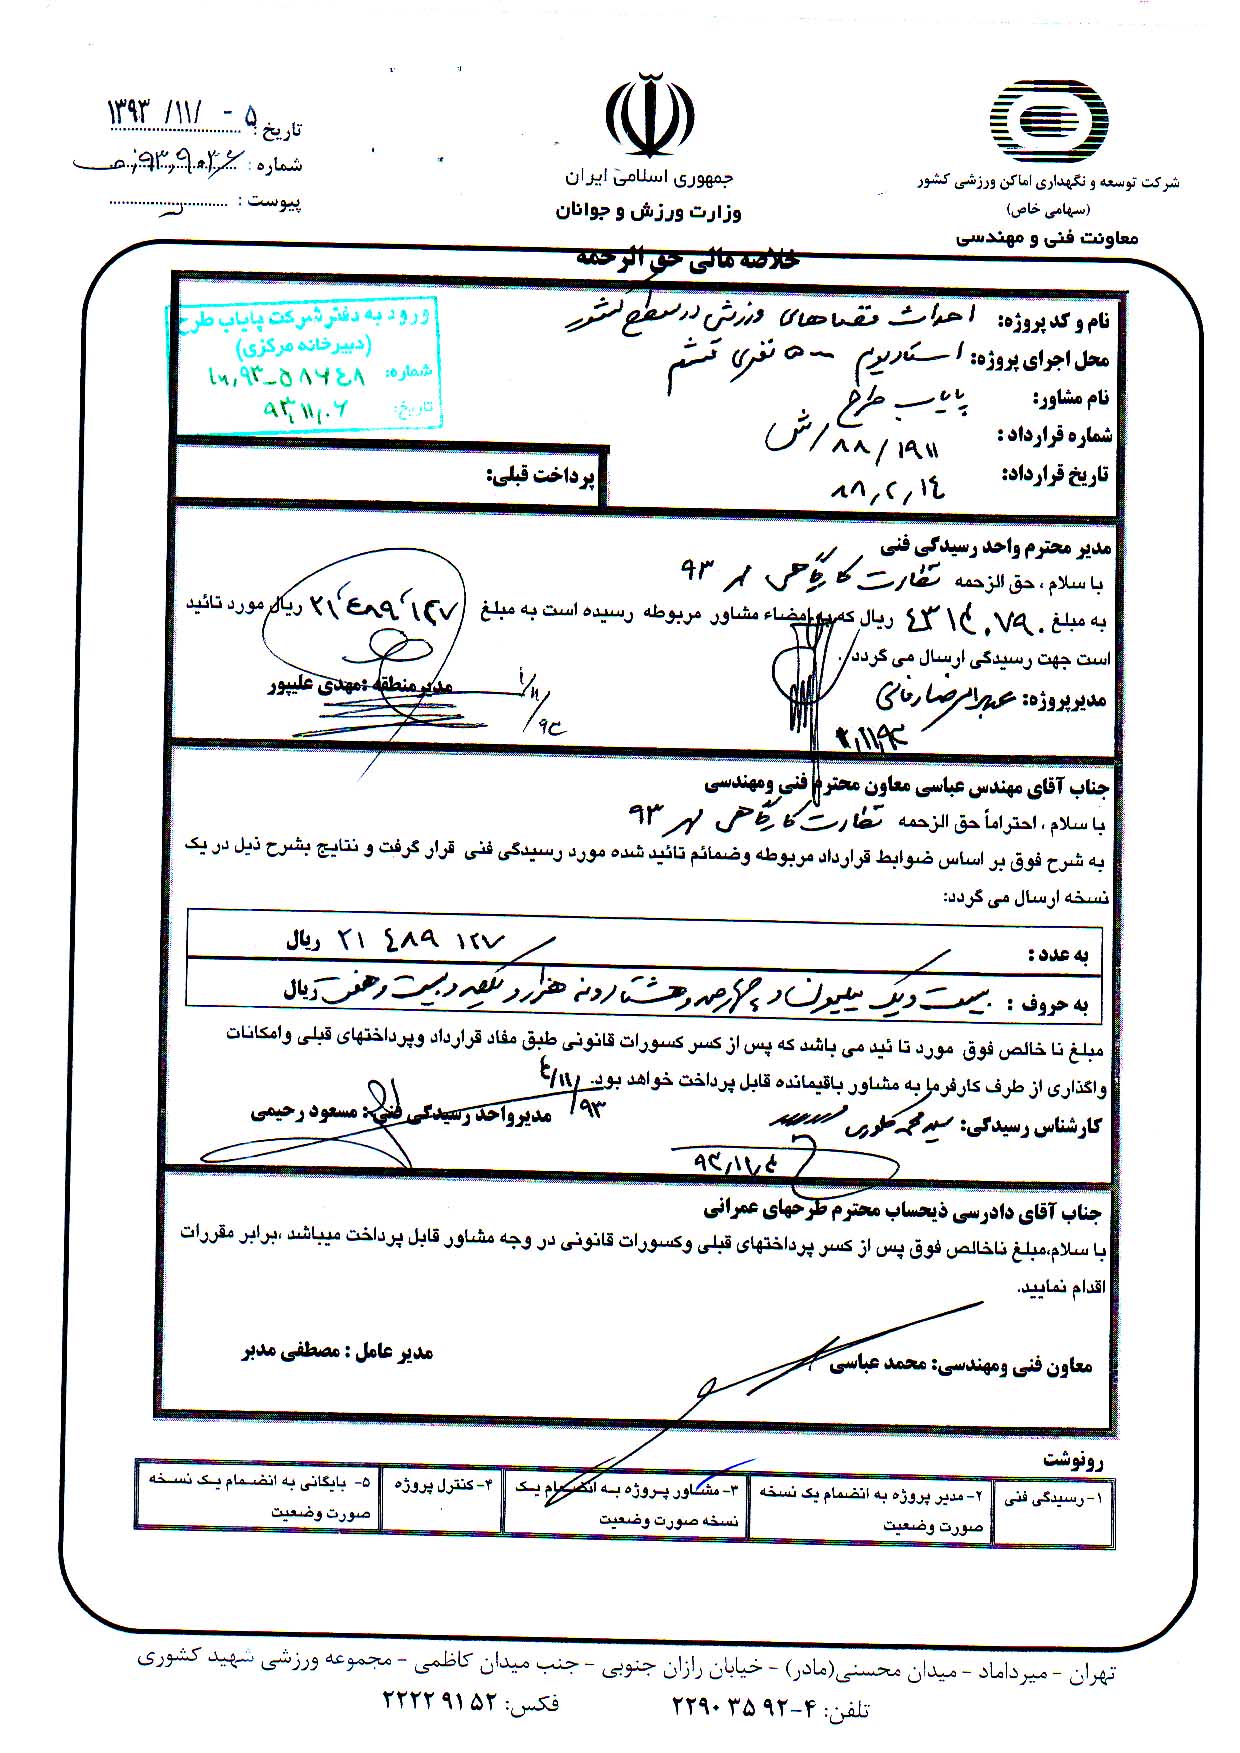 شرکت توسعه و نگهداری اماکن ورزشی کشور
(سهامی خاص)
معاونت فنی و مهندسی
جمهوری اسلامی ایران
وزارت ورزش و جوانان
تاریخ: ۱۳۹۳/۱۱/۰۵
شماره:
پیوست:
خلاصه مالی حق الزحمه
ورود به دفتر شرکت پایاب طرح
(دبیرخانه مرکزی)
شماره: ۹۳-۵۸۶۴۸
تاریخ: ۹۳.۱۱.۰۶
نام و کد پروژه: احداث فضاهای ورزشی در سطح کشور
محل اجرای پروژه: استادیوم ۵۰۰۰ نفری قشم
نام مشاور: پایاب طرح
شماره قرارداد: ۸۸/۱۹۱۱/ش
تاریخ قرارداد: ۸۸,۲,۱۴
پرداخت قبلی:
مدیر محترم واحد رسیدگی فنی
با سلام ، حق الزحمه نظارت کارگاهی مهر ۹۳
به مبلغ ریال که به امضاء مشاور مربوطه رسیده است به مبلغ ۲۱٬۴۸۹٬۱۲۷ ریال مورد تائید
است جهت رسیدگی ارسال می گردد.
مدیرپروژه:
مدیرمنطقه :مهدی علیپور
جناب آقای مهندس عباسی معاون محترم فنی ومهندسی
با سلام ، احتراماً حق الزحمه نظارت کارگاهی مهر ۹۳
به شرح فوق بر اساس ضوابط قرارداد مربوطه وضمائم تائید شده مورد رسیدگی فنی قرار گرفت و نتایج بشرح ذیل در یک
نسخه ارسال می گردد:
به عدد : ۲۱ ۴۸۹ ۱۲۷ ریال
به حروف : بیست و یک میلیون و چهارصد و هشتاد و نه هزار و یکصد و بیست و هفت ریال
مبلغ نا خالص فوق مورد تا ئید می باشد که پس از کسر کسورات قانونی طبق مفاد قرارداد وپرداختهای قبلی وامکانات
واگذاری از طرف کارفرما به مشاور باقیمانده قابل پرداخت خواهد بود. ۹۳/۱۱/۴
کارشناس رسیدگی: سید محمد
مدیرواحد رسیدگی فنی : مسعود رحیمی
۹۳,۱۱,۴
جناب آقای دادرسی ذیحساب محترم طرحهای عمرانی
با سلام،مبلغ ناخالص فوق پس از کسر پرداختهای قبلی وکسورات قانونی در وجه مشاور قابل پرداخت میباشد ،برابر مقررات
اقدام نمایید.
معاون فنی ومهندسی: محمد عباسی
مدیر عامل : مصطفی مدبر
رونوشت
۱-رسیدگی فنی
۲-مدیر پروژه به انضمام یک نسخه
صورت وضعیت
۳-مشاور پروژه به انضمام یک
نسخه صورت وضعیت
۴-کنترل پروژه
۵- بایگانی به انضمام یک نسخه
صورت وضعیت
تهران - میرداماد - میدان محسنی(مادر) - خیابان رازان جنوبی - جنب میدان کاظمی - مجموعه ورزشی شهید کشوری
تلفن: ۴-۲۲۹۰۳۵۹۲ فکس: ۲۲۲۲۹۱۵۲